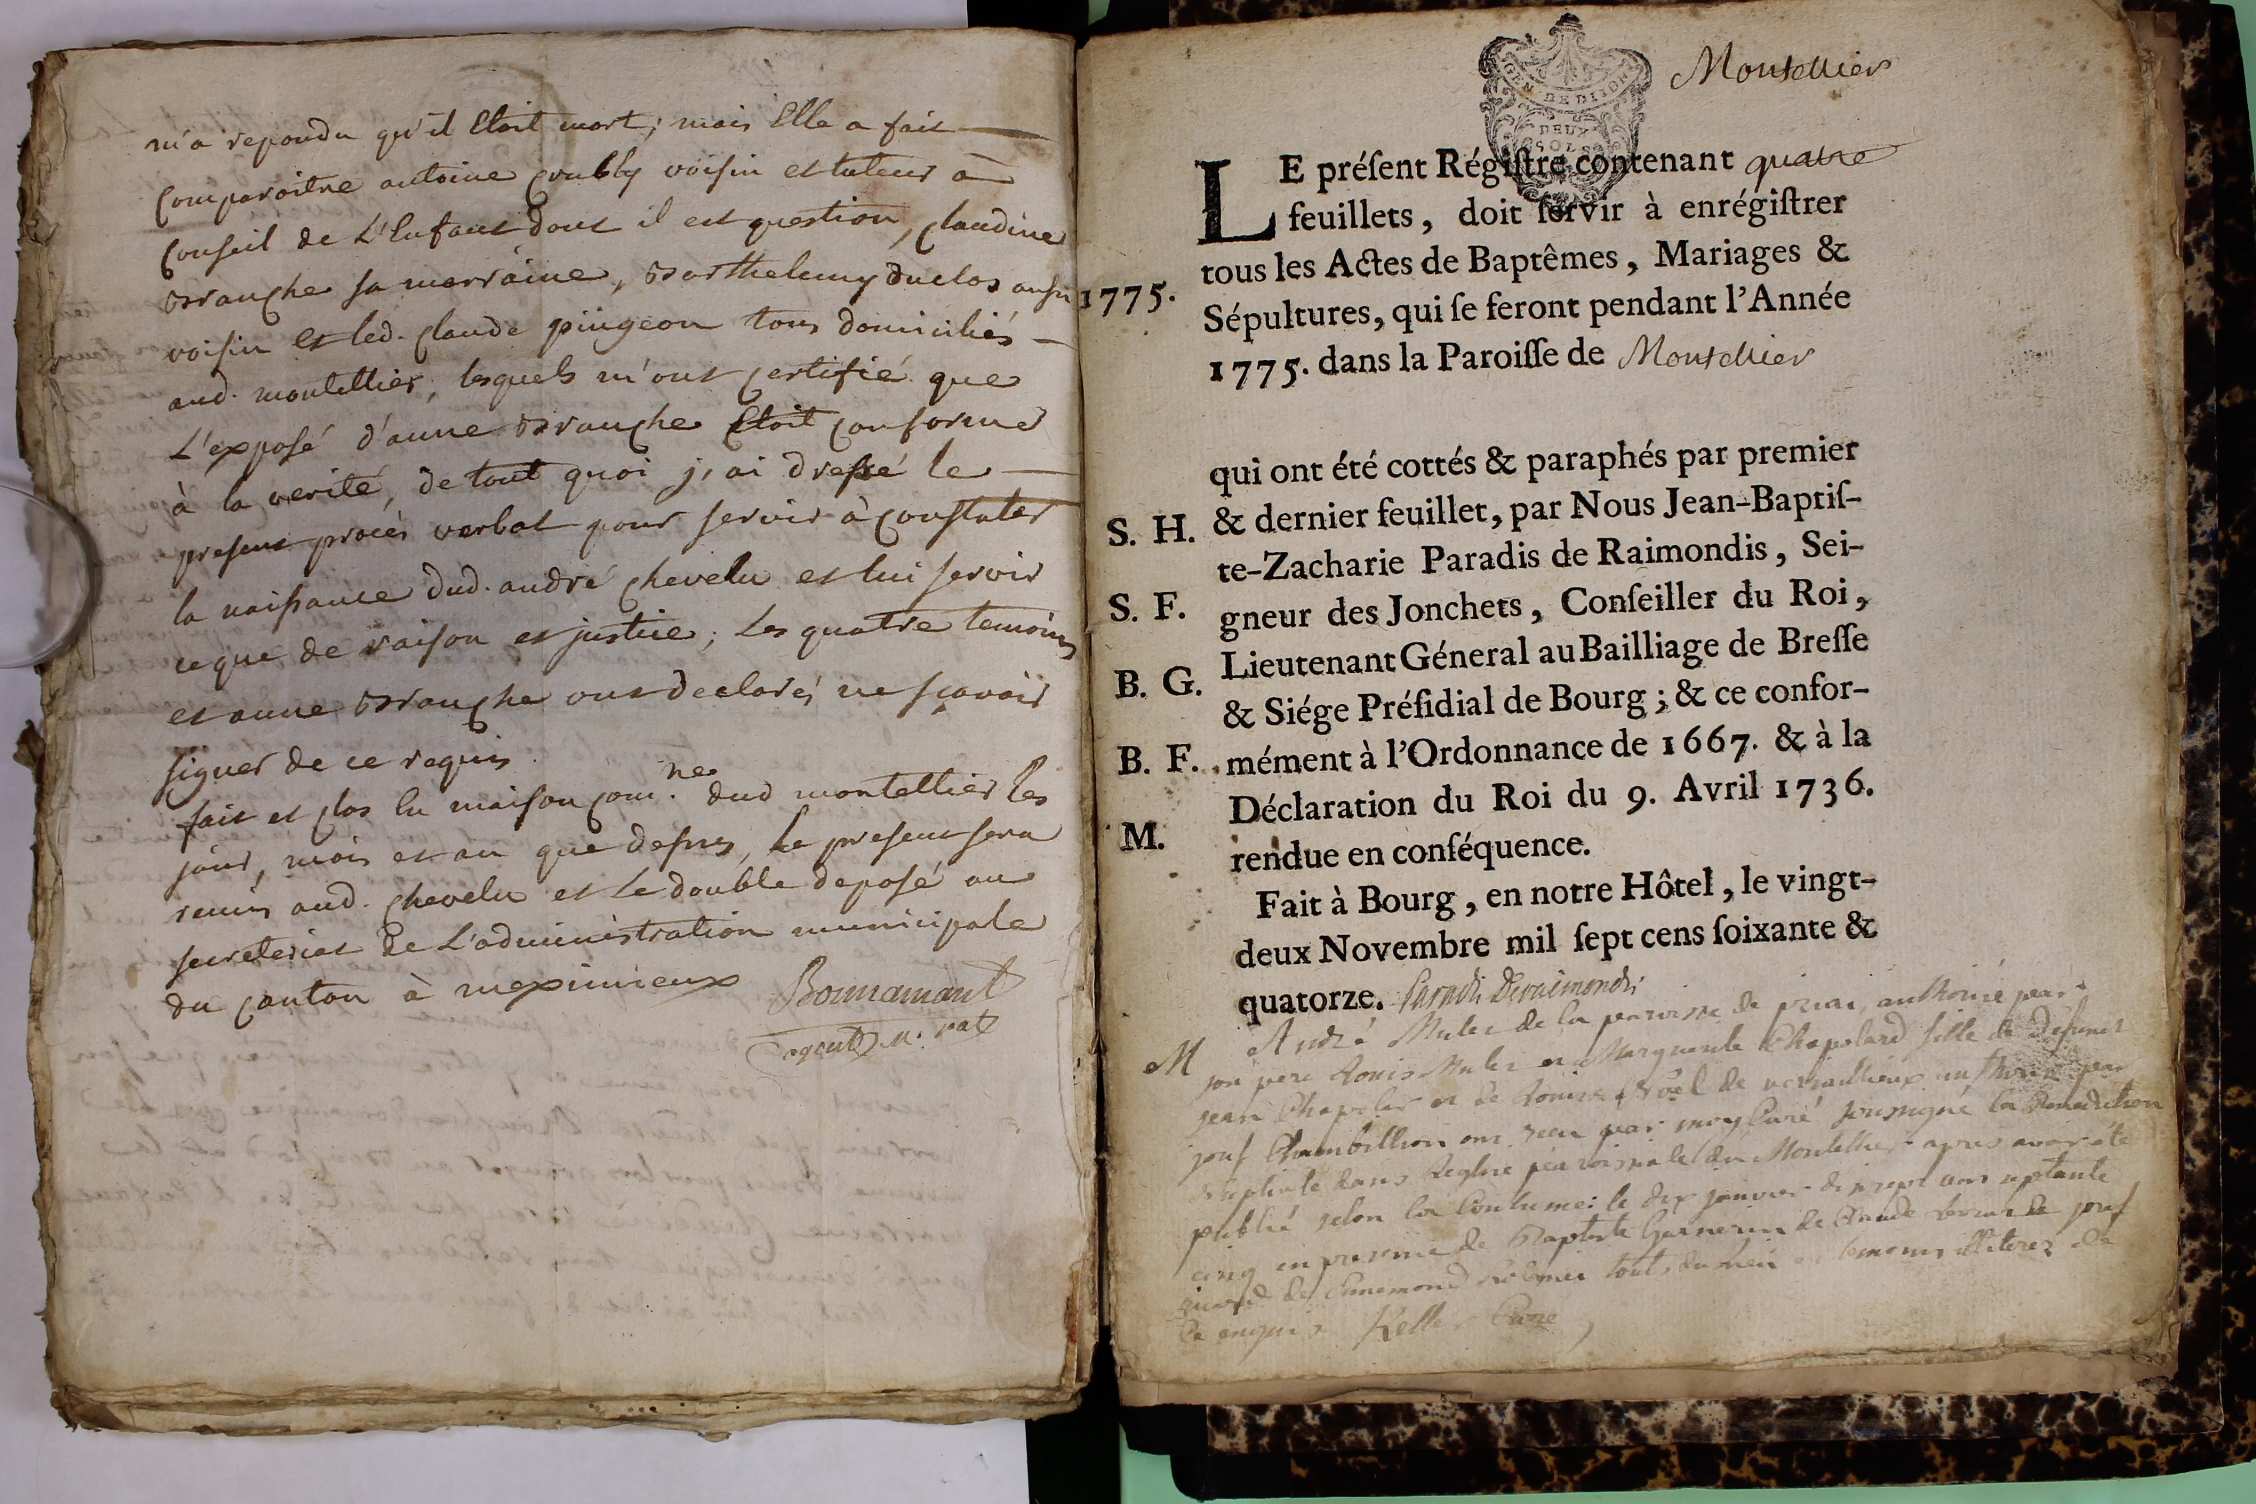 m'a repondu qu'il Etoit mort ; mais Elle a fait
comparoitre antoine voisin et tuteur a
conseil de L'Enfant dont il est question, claudine
Branche sa marraine, Barthelemy duclos aussi
voisin et led. claude pingeon tous domiciliés
aud. montellier, lesquels m'ont certifié que
L'exposé d'anne Branche Etoit conforme
à la verité, de tout quoi j'ai dressé le
present procès verbal pour servir à constater
la naissance dud. andré chevelu et lui servir
ceque de raison et justice ; Les quatre temoins
et anne Branche ont declarés ne sçavoir
signer de ce requis
fait et clos En maison com.ne dud montellier Les
jour, mois et an que dessus, Le present sera
remis aud. chevelu et Le double deposé au
secreteriat de L'administration municipale
du canton à meximieux
Bonnamant
agent m. pal
GEN. DE DIJON
DEUX
SOLS
Montellier
LE préſent Régiſtre contenant quatre
feuillets, doit ſervir à enrégiſtrer
tous les Actes de Baptêmes, Mariages &
1775.
Sépultures, qui ſe feront pendant l'Année
1775. dans la Paroiſſe de Montellier
qui ont été cottés & paraphés par premier
S. H. & dernier feuillet, par Nous Jean-Baptiſ-
te-Zacharie Paradis de Raimondis, Sei-
S. F. gneur des Jonchets, Conſeiller du Roi,
Lieutenant Géneral au Bailliage de Breſſe
B. G. & Siége Préſidial de Bourg ; & ce confor-
B. F. mément à l'Ordonnance de 1667. & à la
Déclaration du Roi du 9. Avril 1736.
M. rendue en conſéquence.
Fait à Bourg, en notre Hôtel, le vingt-
deux Novembre mil ſept cens ſoixante &
quatorze. Paradis Deraimondis
M André Mulet de la paroisse de priai, authorisé par
son pere Louis Mulet et Marguerite Chapolard fille de défunt
jean et de Louise de versaillieux authorisé par
jouf ont recu par moy Curé soussigné la Benediction
Nuptiale dans Leglise paroissiale du Montellier apres avoir été
publié selon la Coutume : le dix janvier mil sept cens septante
cinq en presence de Baptiste Garnerin de Claude de jouf
de Ennemond touts du lieu et temoins illiterez de
Ce enquis Keller Curé